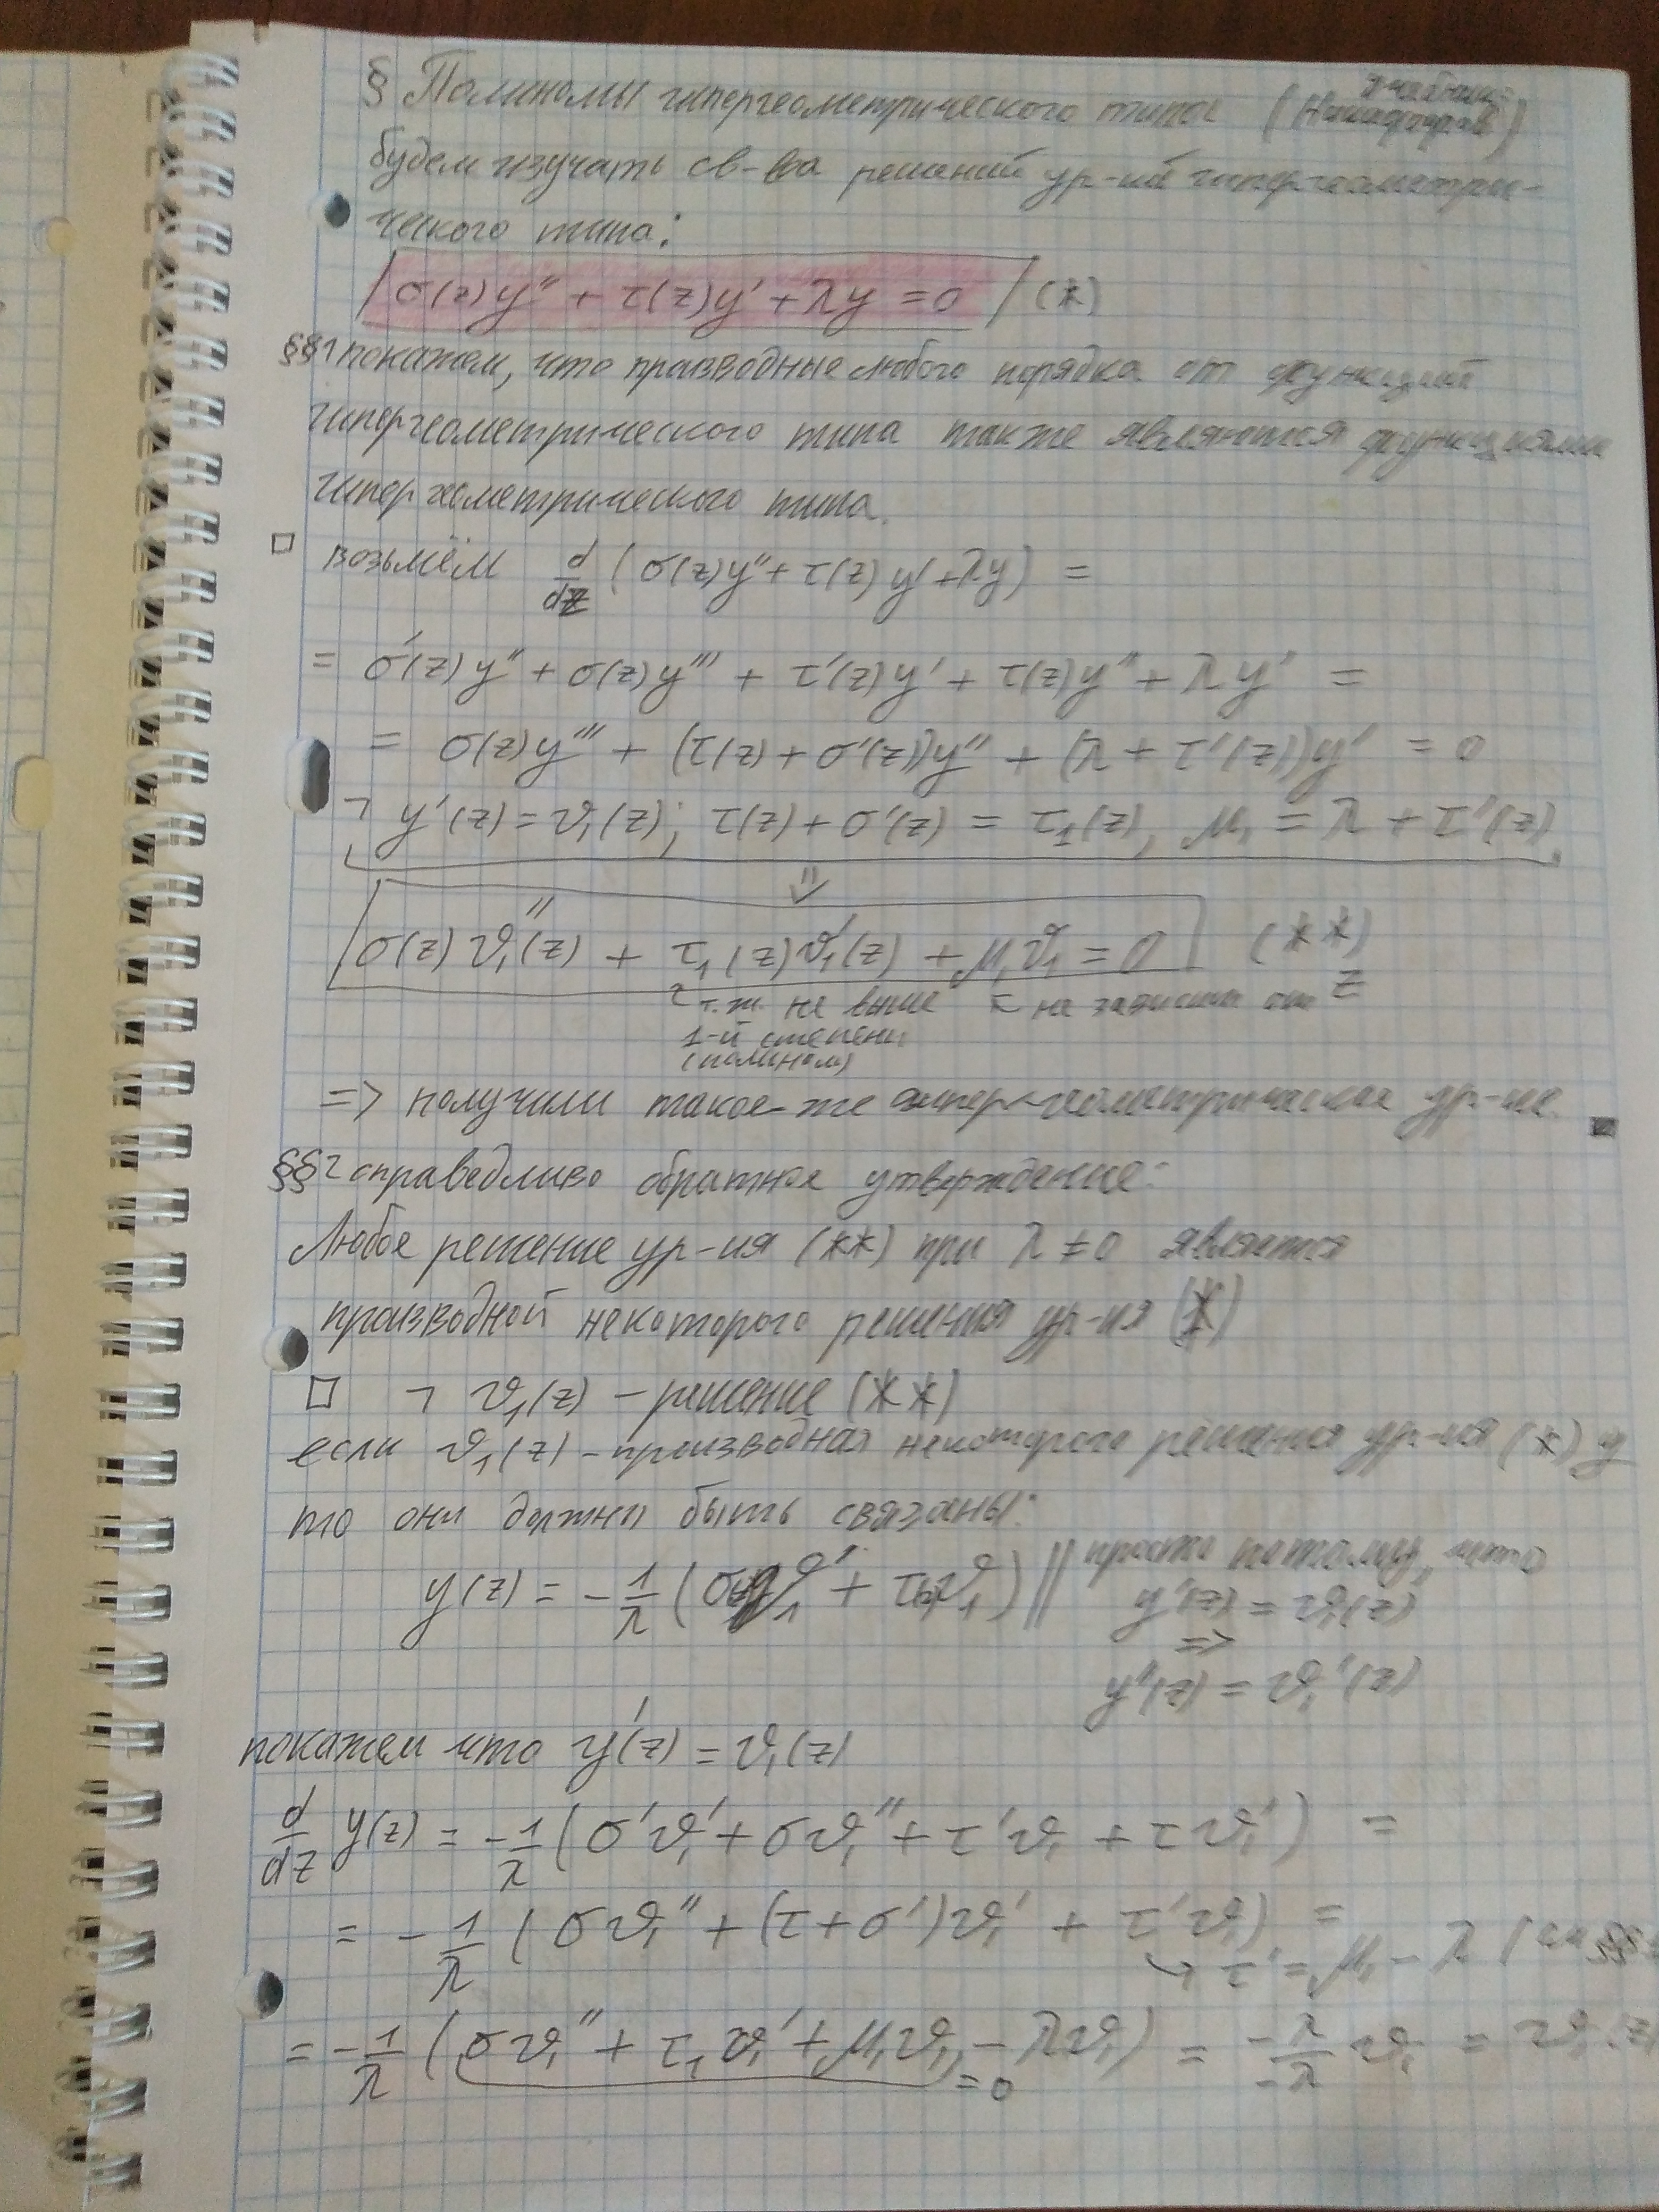 § Полиномы гипергеометрического типа (учебник: Никифоров)
будем изучать св-ва решений ур-ий гипергеометри-
ческого типа:
σ(z)y'' + τ(z)y' + λy = 0 (*)
§§1 покажем, что празводные любого порядка от функций
гипергеометрического типа также являются функциями
гипергеометрического типа.
□ возьмём d/dz (σ(z)y'' + τ(z)y' + λy) =
= σ'(z)y'' + σ(z)y''' + τ'(z)y' + τ(z)y'' + λy' =
= σ(z)y''' + (τ(z) + σ'(z))y'' + (λ + τ'(z))y' = 0
¬ y'(z) = ϑ₁(z); τ(z) + σ'(z) = τ₁(z), μ₁ = λ + τ'(z).
⇓
σ(z)ϑ₁''(z) + τ₁(z)ϑ₁'(z) + μ₁ϑ₁ = 0 (**)
т.ж. не выше
1-й степени
(полином)
не зависит от z
=> получили такое-же гипер-геометрическое ур-ие ■
§§2 справедливо обратное утверждение:
Любое решение ур-ия (**) при λ ≠ 0 является
производной некоторого решения ур-ия (*)
□ ¬ ϑ₁(z) – решение (**)
если ϑ₁(z) – производная некоторого решения ур-ия (*) y
то они должны быть связаны:
y(z) = -1/λ (σ(z)ϑ₁' + τ(z)ϑ₁) || просто потому, что
y'(z) = ϑ₁(z)
=>
y''(z) = ϑ₁'(z)
покажем что y'(z) = ϑ₁(z)
d/dz y(z) = -1/λ (σ'ϑ₁' + σϑ₁'' + τ'ϑ₁ + τϑ₁') =
= -1/λ (σϑ₁'' + (τ + σ')ϑ₁' + τ'ϑ₁) =
↳ τ' = μ₁ - λ
= -1/λ (σϑ₁'' + τ₁ϑ₁' + μ₁ϑ₁ - λϑ₁) = -λ/-λ ϑ₁ = ϑ₁(z)
= 0